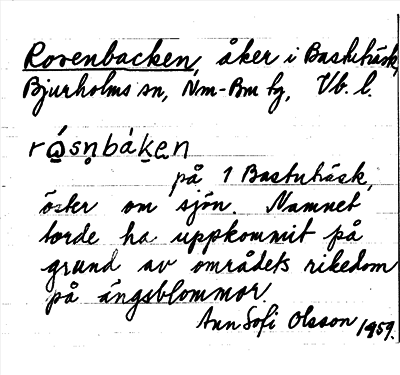 Rosenbacken, åker i Bastuträsk,
Bjurholms sn, Nm-Bm tg, Vb. l.
råsn̥bákən
på 1 Bastuträsk,
öster om sjön. Namnet
torde ha uppkommit på
grund av områdets rikedom
på ängsblommor.
Ann Sofi Olsson 1959.